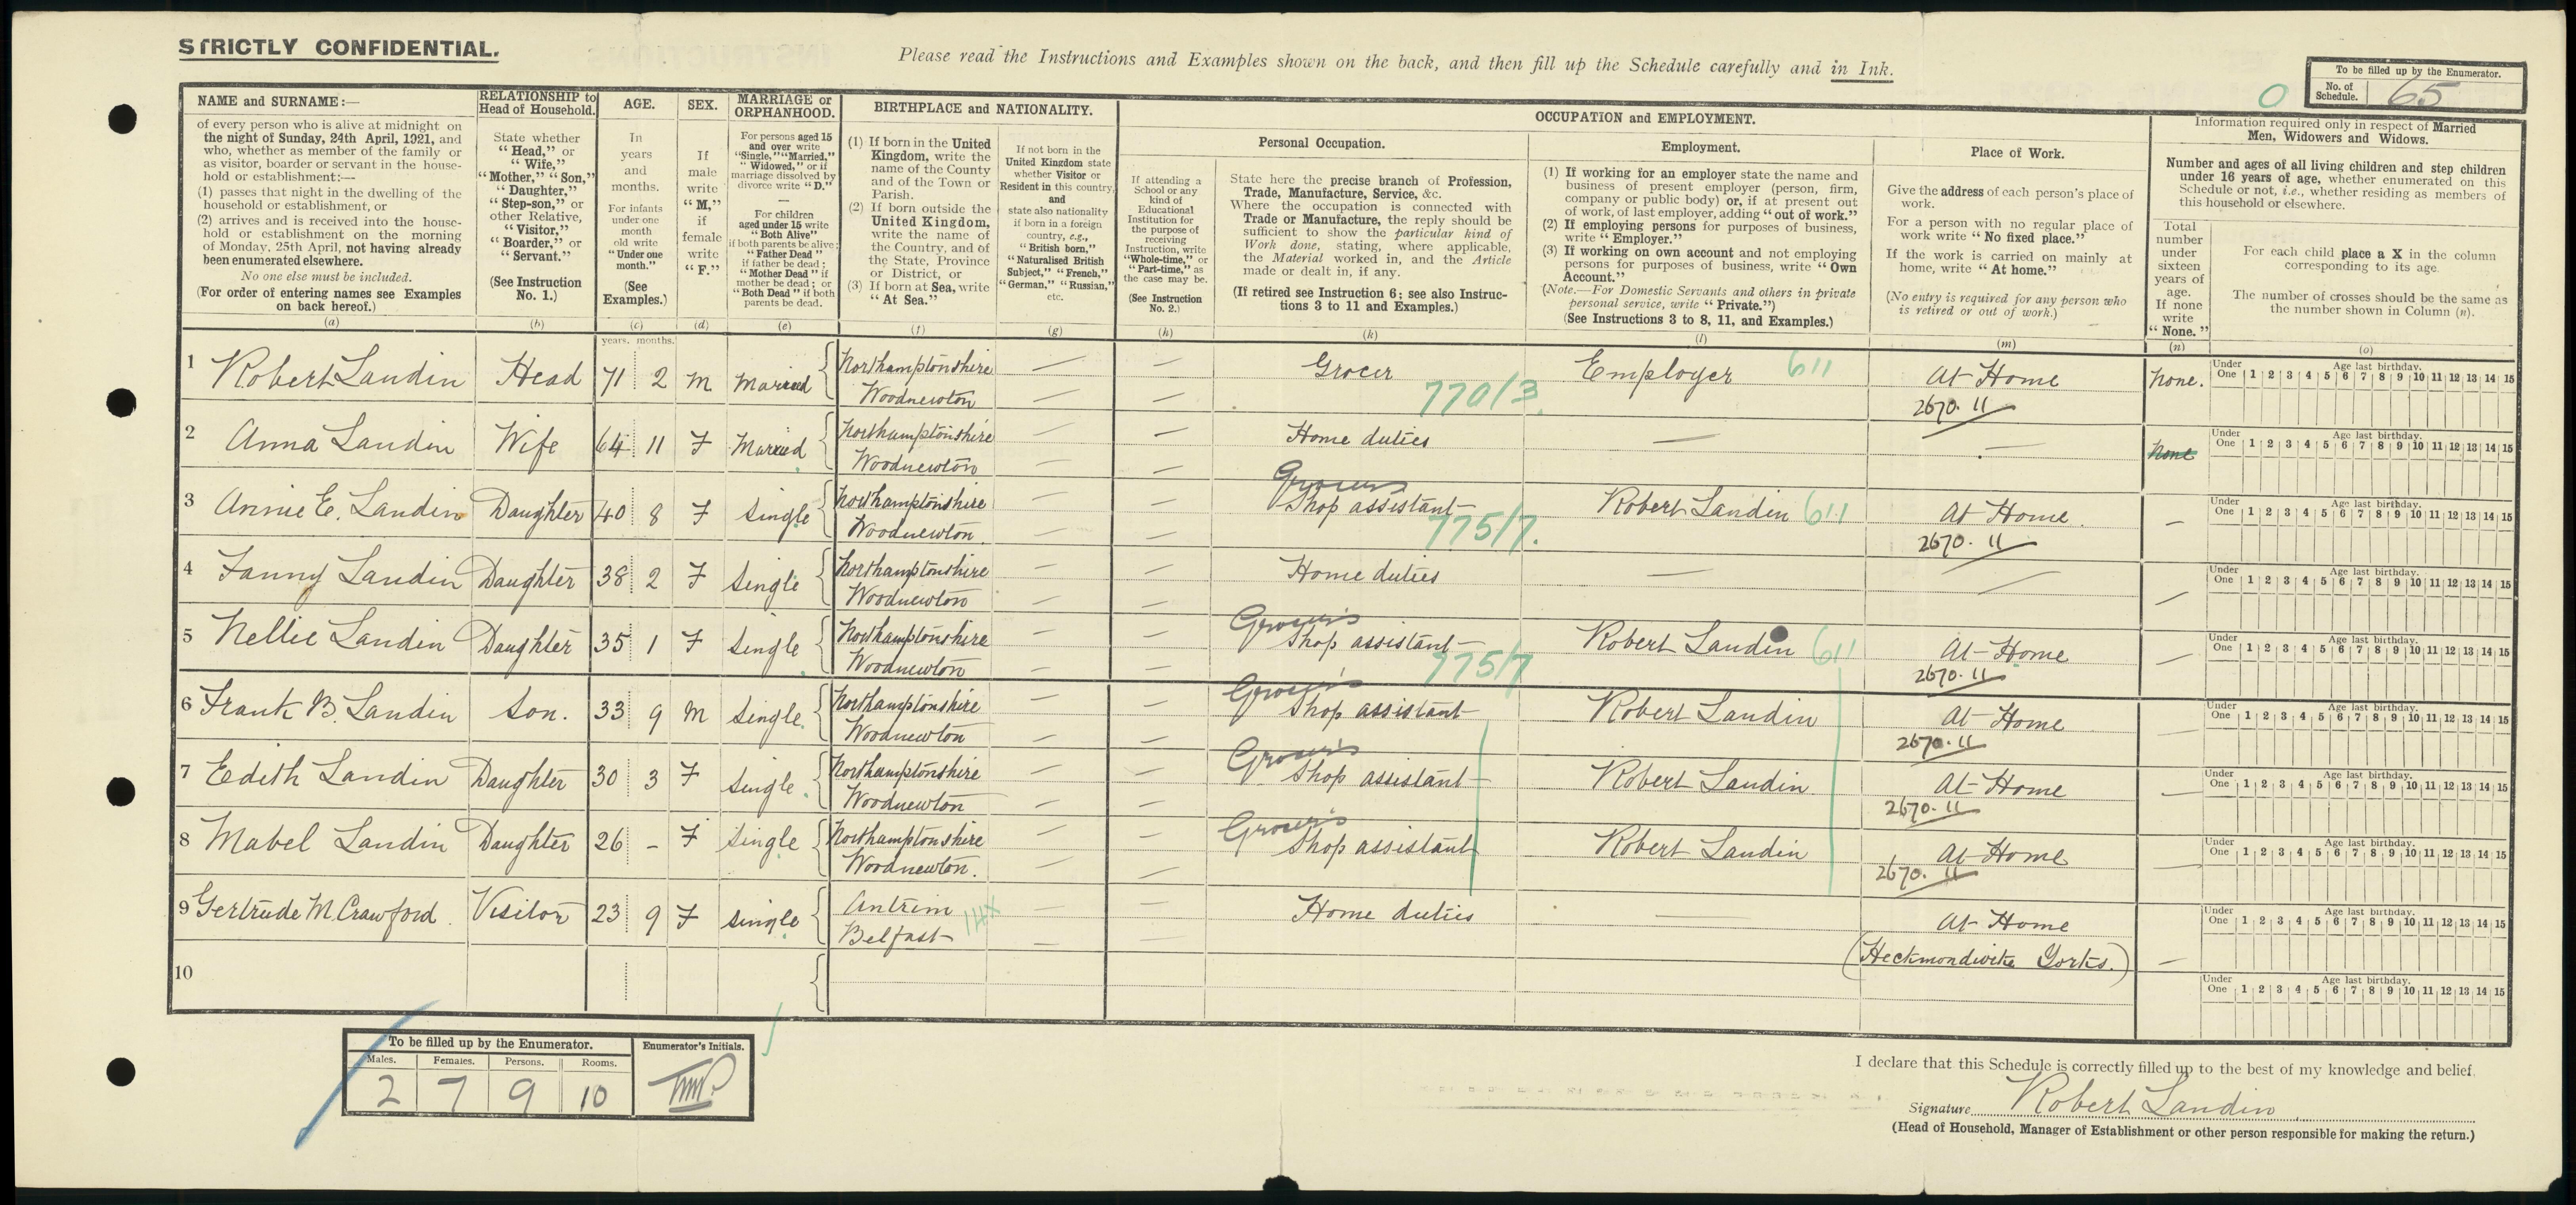 STRICTLY CONFIDENTIAL.
Please read the Instructions and Examples shown on the back, and then fill up the Schedule carefully and in Ink.
To be filled up by the Enumerator.
No. of Schedule. 65
0
NAME and SURNAME:—
of every person who is alive at midnight on
the night of Sunday, 24th April, 1921, and
who, whether as member of the family or
as visitor, boarder or servant in the house-
hold or establishment:—
(1) passes that night in the dwelling of the
household or establishment, or
(2) arrives and is received into the house-
hold or establishment on the morning
of Monday, 25th April, not having already
been enumerated elsewhere.
No one else must be included.
(For order of entering names see Examples
on back hereof.)
(a)
RELATIONSHIP to
Head of Household.
State whether
"Head," or
"Wife,"
"Mother," "Son,"
"Daughter,"
"Step-son," or
other Relative,
"Visitor,"
"Boarder," or
"Servant."
(See Instruction
No. 1.)
(b)
AGE.
In
years
and
months.
For infants
under one
month
old write
"Under one
month."
(See
Examples.)
(c)
SEX.
If
male
write
"M,"
if
female
write
"F."
(d)
MARRIAGE or
ORPHANHOOD.
For persons aged 15
and over write
"Single," "Married,"
"Widowed," or if
marriage dissolved by
divorce write "D."
—
For children
aged under 15 write
"Both Alive"
if both parents be alive;
"Father Dead"
if father be dead;
"Mother Dead" if
mother be dead; or
"Both Dead" if both
parents be dead.
(e)
BIRTHPLACE and NATIONALITY.
(1) If born in the United
Kingdom, write the
name of the County
and of the Town or
Parish.
(2) If born outside the
United Kingdom,
write the name of
the Country, and of
the State, Province
or District, or
(3) If born at Sea, write
"At Sea."
(f)
If not born in the
United Kingdom state
whether Visitor or
Resident in this country,
and
state also nationality
if born in a foreign
country, e.g.,
"British born,"
"Naturalised British
Subject," "French,"
"German," "Russian,"
etc.
(g)
OCCUPATION and EMPLOYMENT.
If attending a
School or any
kind of
Educational
Institution for
the purpose of
receiving
Instruction, write
"Whole-time," or
"Part-time," as
the case may be.
(See Instruction
No. 2.)
(h)
Personal Occupation.
State here the precise branch of Profession,
Trade, Manufacture, Service, &c.
Where the occupation is connected with
Trade or Manufacture, the reply should be
sufficient to show the particular kind of
Work done, stating, where applicable,
the Material worked in, and the Article
made or dealt in, if any.
(If retired see Instruction 6; see also Instruc-
tions 3 to 11 and Examples.)
(k)
Employment.
(1) If working for an employer state the name and
business of present employer (person, firm,
company or public body) or, if at present out
of work, of last employer, adding "out of work."
(2) If employing persons for purposes of business,
write "Employer."
(3) If working on own account and not employing
persons for purposes of business, write "Own
Account."
(Note.—For Domestic Servants and others in private
personal service, write "Private.")
(See Instructions 3 to 8, 11, and Examples.)
(l)
Place of Work.
Give the address of each person's place of
work.
For a person with no regular place of
work write "No fixed place."
If the work is carried on mainly at
home, write "At home."
(No entry is required for any person who
is retired or out of work.)
(m)
Information required only in respect of Married
Men, Widowers and Widows.
Number and ages of all living children and step children
under 16 years of age, whether enumerated on this
Schedule or not, i.e., whether residing as members of
this household or elsewhere.
Total
number
under
sixteen
years of
age.
If none
write
"None."
(n)
For each child place a X in the column
corresponding to its age.
The number of crosses should be the same as
the number shown in Column (n).
(o)
years. months.
1 Robert Landin Head 71 2 M Married Northamptonshire Woodnewton — — Grocer 770/3 Employer 611 At Home 2670.11 None.
Under One 1 2 3 4 5 6 7 8 9 10 11 12 13 14 15 Age last birthday.
2 Anna Landin Wife 64 11 F Married Northamptonshire Woodnewton — — Home duties — — None
Under One 1 2 3 4 5 6 7 8 9 10 11 12 13 14 15 Age last birthday.
3 Annie E. Landin Daughter 40 8 F Single Northamptonshire Woodnewton. — — Grocers Shop assistant 775/7. Robert Landin 611 At Home. 2670.11 —
Under One 1 2 3 4 5 6 7 8 9 10 11 12 13 14 15 Age last birthday.
4 Fanny Landin Daughter 38 2 F Single Northamptonshire Woodnewton — — Home duties — — —
Under One 1 2 3 4 5 6 7 8 9 10 11 12 13 14 15 Age last birthday.
5 Nellie Landin Daughter 35 1 F Single Northamptonshire Woodnewton — — Grocer's Shop assistant 775/7 Robert Landin 611 At Home 2670.11 —
Under One 1 2 3 4 5 6 7 8 9 10 11 12 13 14 15 Age last birthday.
6 Frank B. Landin Son. 33 9 M Single Northamptonshire Woodnewton — — Grocer's Shop assistant Robert Landin At Home 2670.11 —
Under One 1 2 3 4 5 6 7 8 9 10 11 12 13 14 15 Age last birthday.
7 Edith Landin Daughter 30 3 F Single Northamptonshire Woodnewton — — Grocer's Shop assistant Robert Landin At Home 2670.11 —
Under One 1 2 3 4 5 6 7 8 9 10 11 12 13 14 15 Age last birthday.
8 Mabel Landin Daughter 26 - F Single Northamptonshire Woodnewton. — — Grocer's Shop assistant Robert Landin At Home 2670.11 —
Under One 1 2 3 4 5 6 7 8 9 10 11 12 13 14 15 Age last birthday.
9 Gertrude M. Crawford. Visitor 23 9 F Single Antrim Belfast 14X — — Home duties — At Home (Heckmondwike Yorks.) —
Under One 1 2 3 4 5 6 7 8 9 10 11 12 13 14 15 Age last birthday.
10
Under One 1 2 3 4 5 6 7 8 9 10 11 12 13 14 15 Age last birthday.
To be filled up by the Enumerator.
Males. Females. Persons. Rooms.
2 7 9 10
Enumerator's Initials.
I declare that this Schedule is correctly filled up to the best of my knowledge and belief.
Signature Robert Landin
(Head of Household, Manager of Establishment or other person responsible for making the return.)